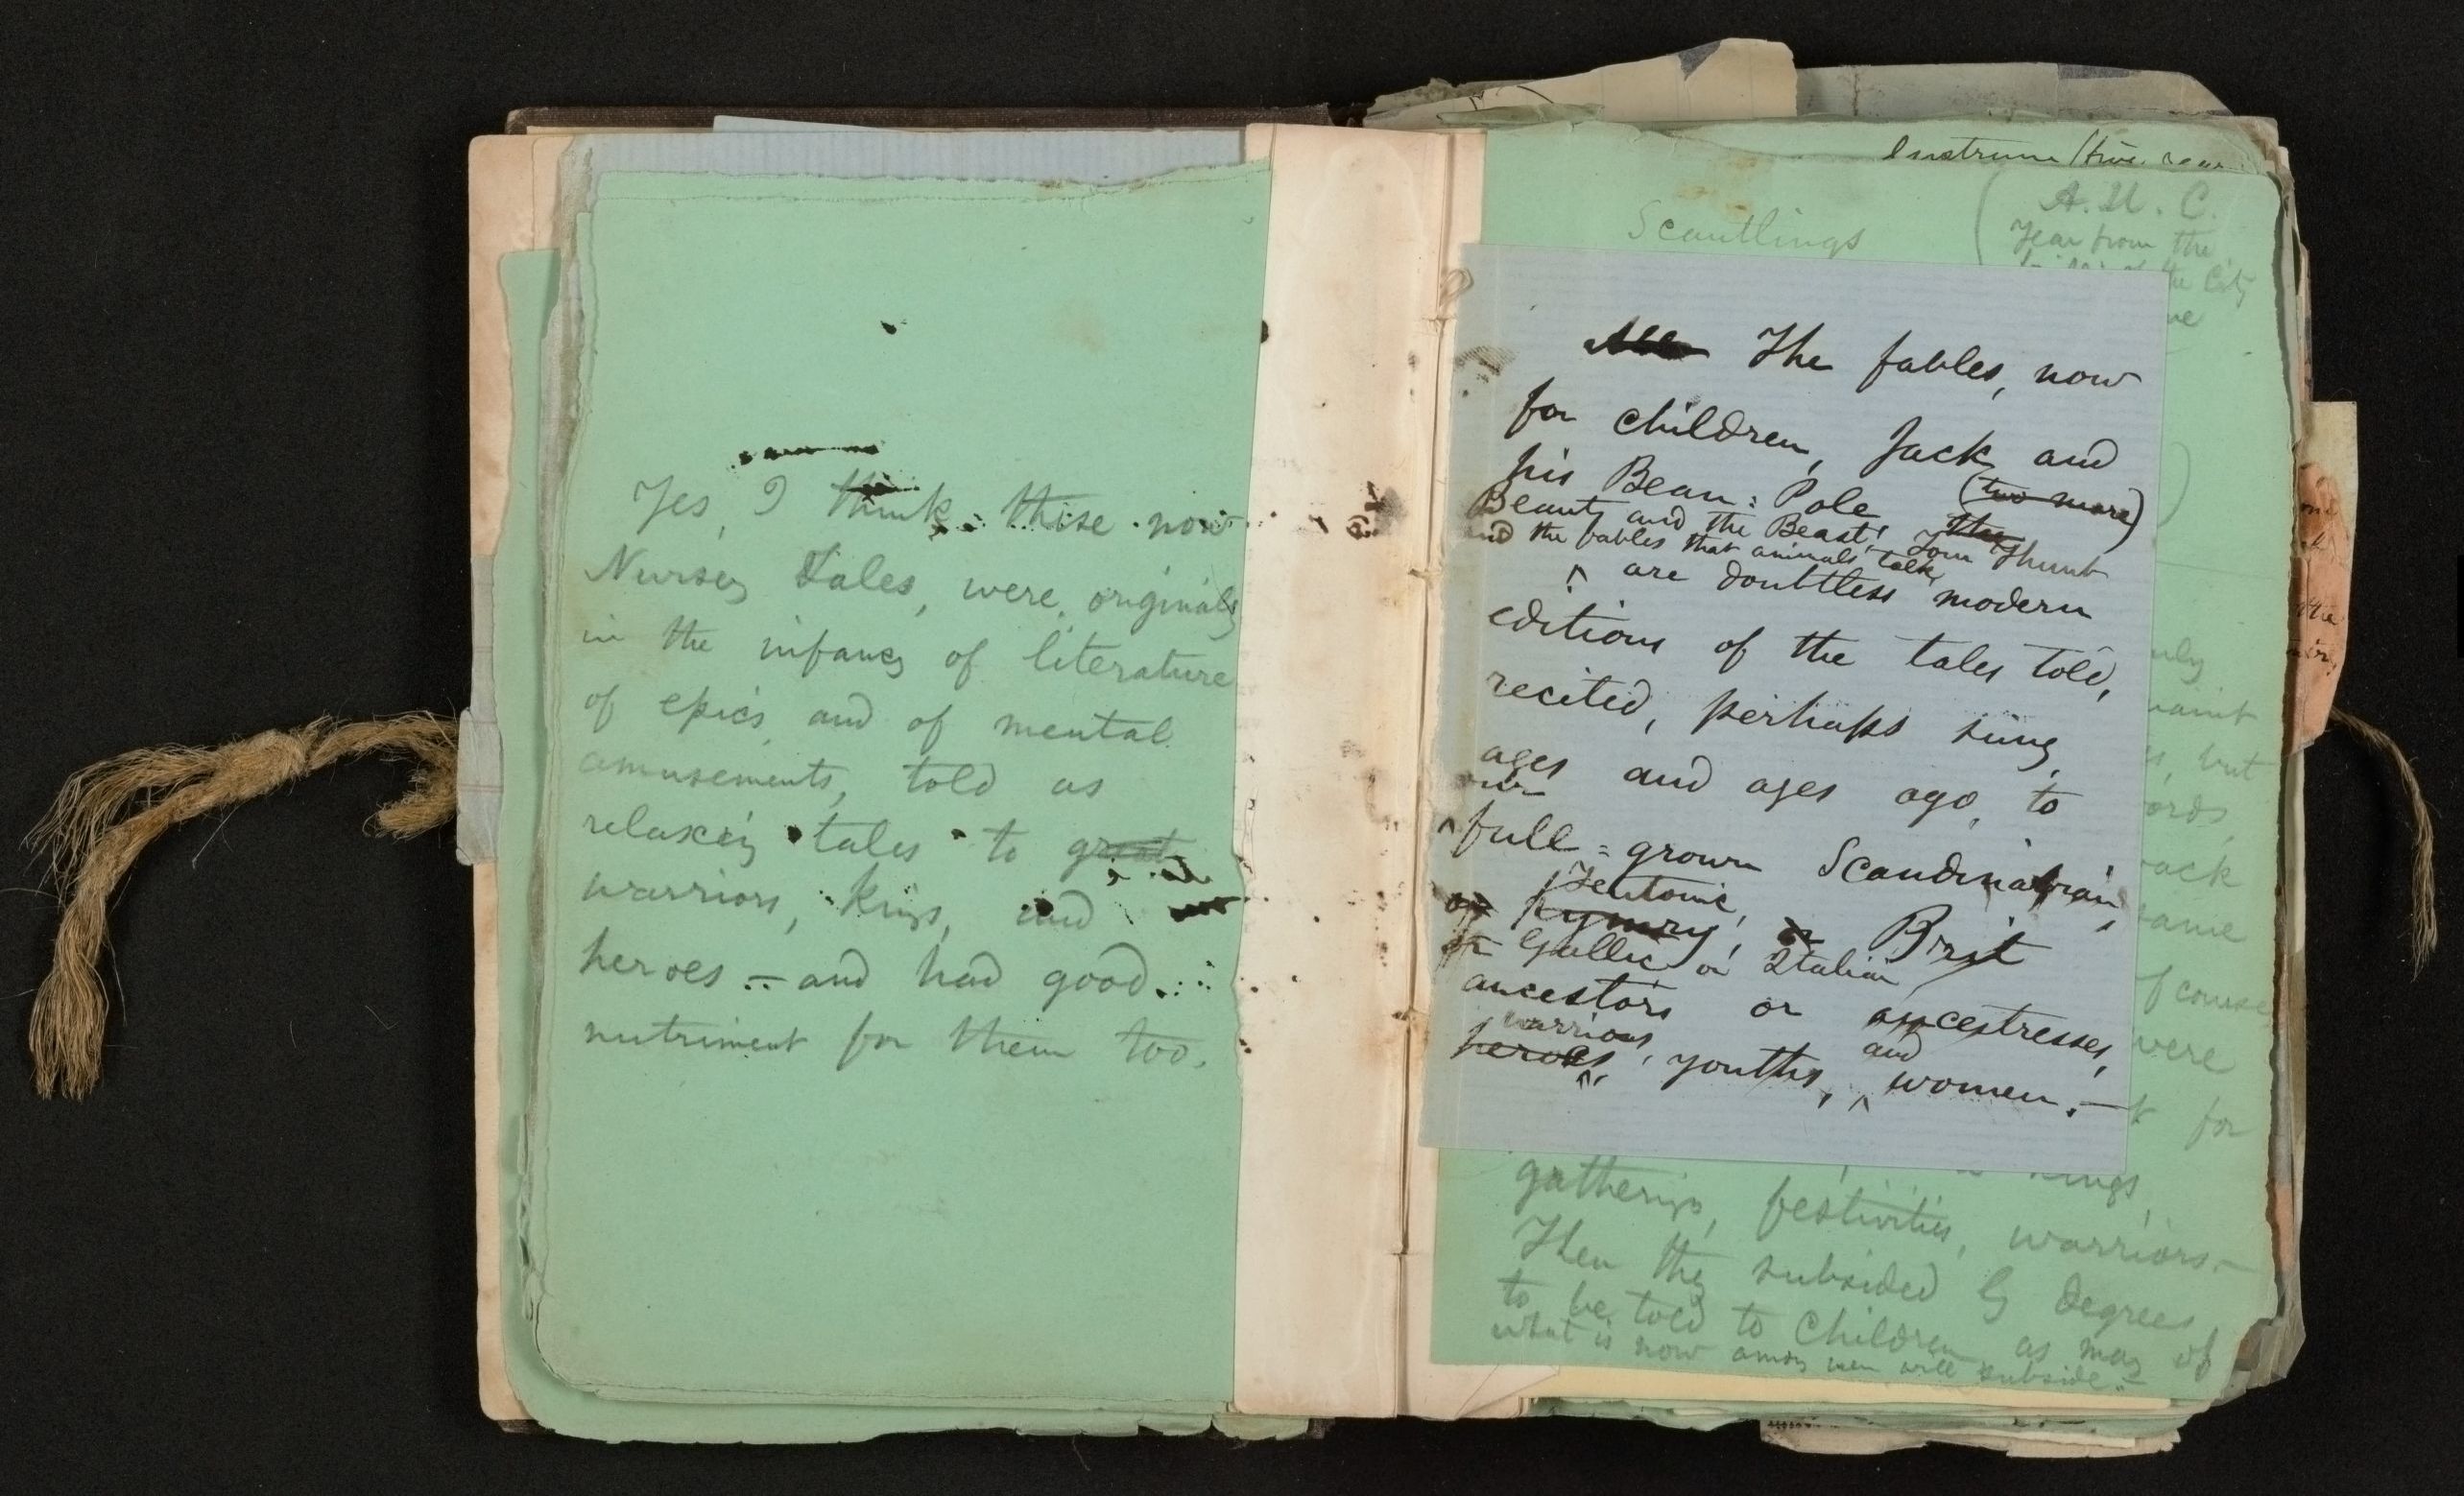 Yes, I think these now
Nursey Tales, were, originally
in the infancy of literature
of epics, and of mental
amusements, told as
relaxing tales to great
warriors, kings, and
heroes – and had good
nutriment for them too.
Lustrum
Scantlings
(A.U.C.
Year from the
the City
The fables, now
for children, Jack and
his Bean-Pole (two more)
Beauty and the Beast, Tom Thumb
and the fables that animals talk,
^ are doubtless modern
editions of the tales told,
recited, perhaps sung,
ages and ages ago, to
our
^full-grown Scandinavian,
Teutonic,
or Kymry, or Brit
or Gallic or Italian
ancestors or ancestresses,
warriors and
heroes, ^ youths, ^ women.—
of course
were
for
kings,
gatherings, festivities, warriors.—
Then they subsided by degrees
to be told to Children, as may of
what is now among men will subside.—